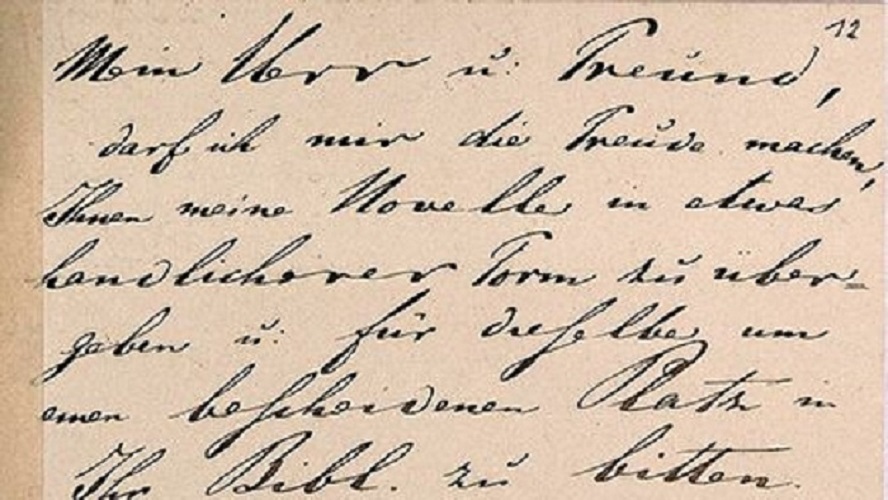 12
Mein Herr u. Freund,
darf ich mir die Freude machen,
Ihnen meine Novelle in etwas
handlicherer Form zu über-
geben u. für dieselbe um
einen bescheidenen Platz in
Ihr Bibl. zu bitten.